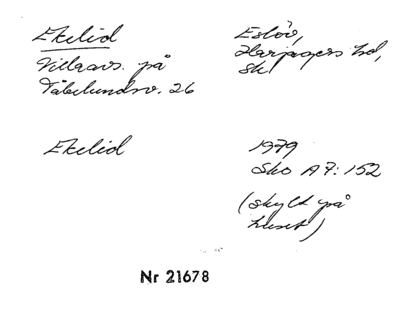 Ekelid
Villaavs. på
Tåbelundsv. 26
Eslöv,
Harjagers hd,
Sk
Ekelid
1979
Sko A 7:152
(skylt på
huset)
Nr 21678